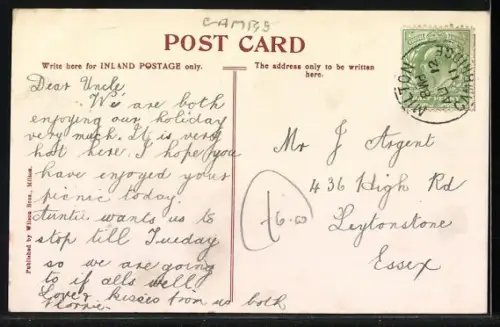 CAMBS
POST CARD
Write here for INLAND POSTAGE only.
The address only to be written
here.
Dear Uncle,
We are both
enjoying our holiday
very much. It is very
hot here. I hope you
have enjoyed your
picnic today.
Auntie wants us to
stop till Tueday
so we are going
to if alls well.
Love & kisses from us both
Florrie
Mr J Argent
436 High Rd
Leytonstone
Essex
£6.00
MILTON
CAMBRIDGE
12
11
Published by Wilson Bros., Milton.